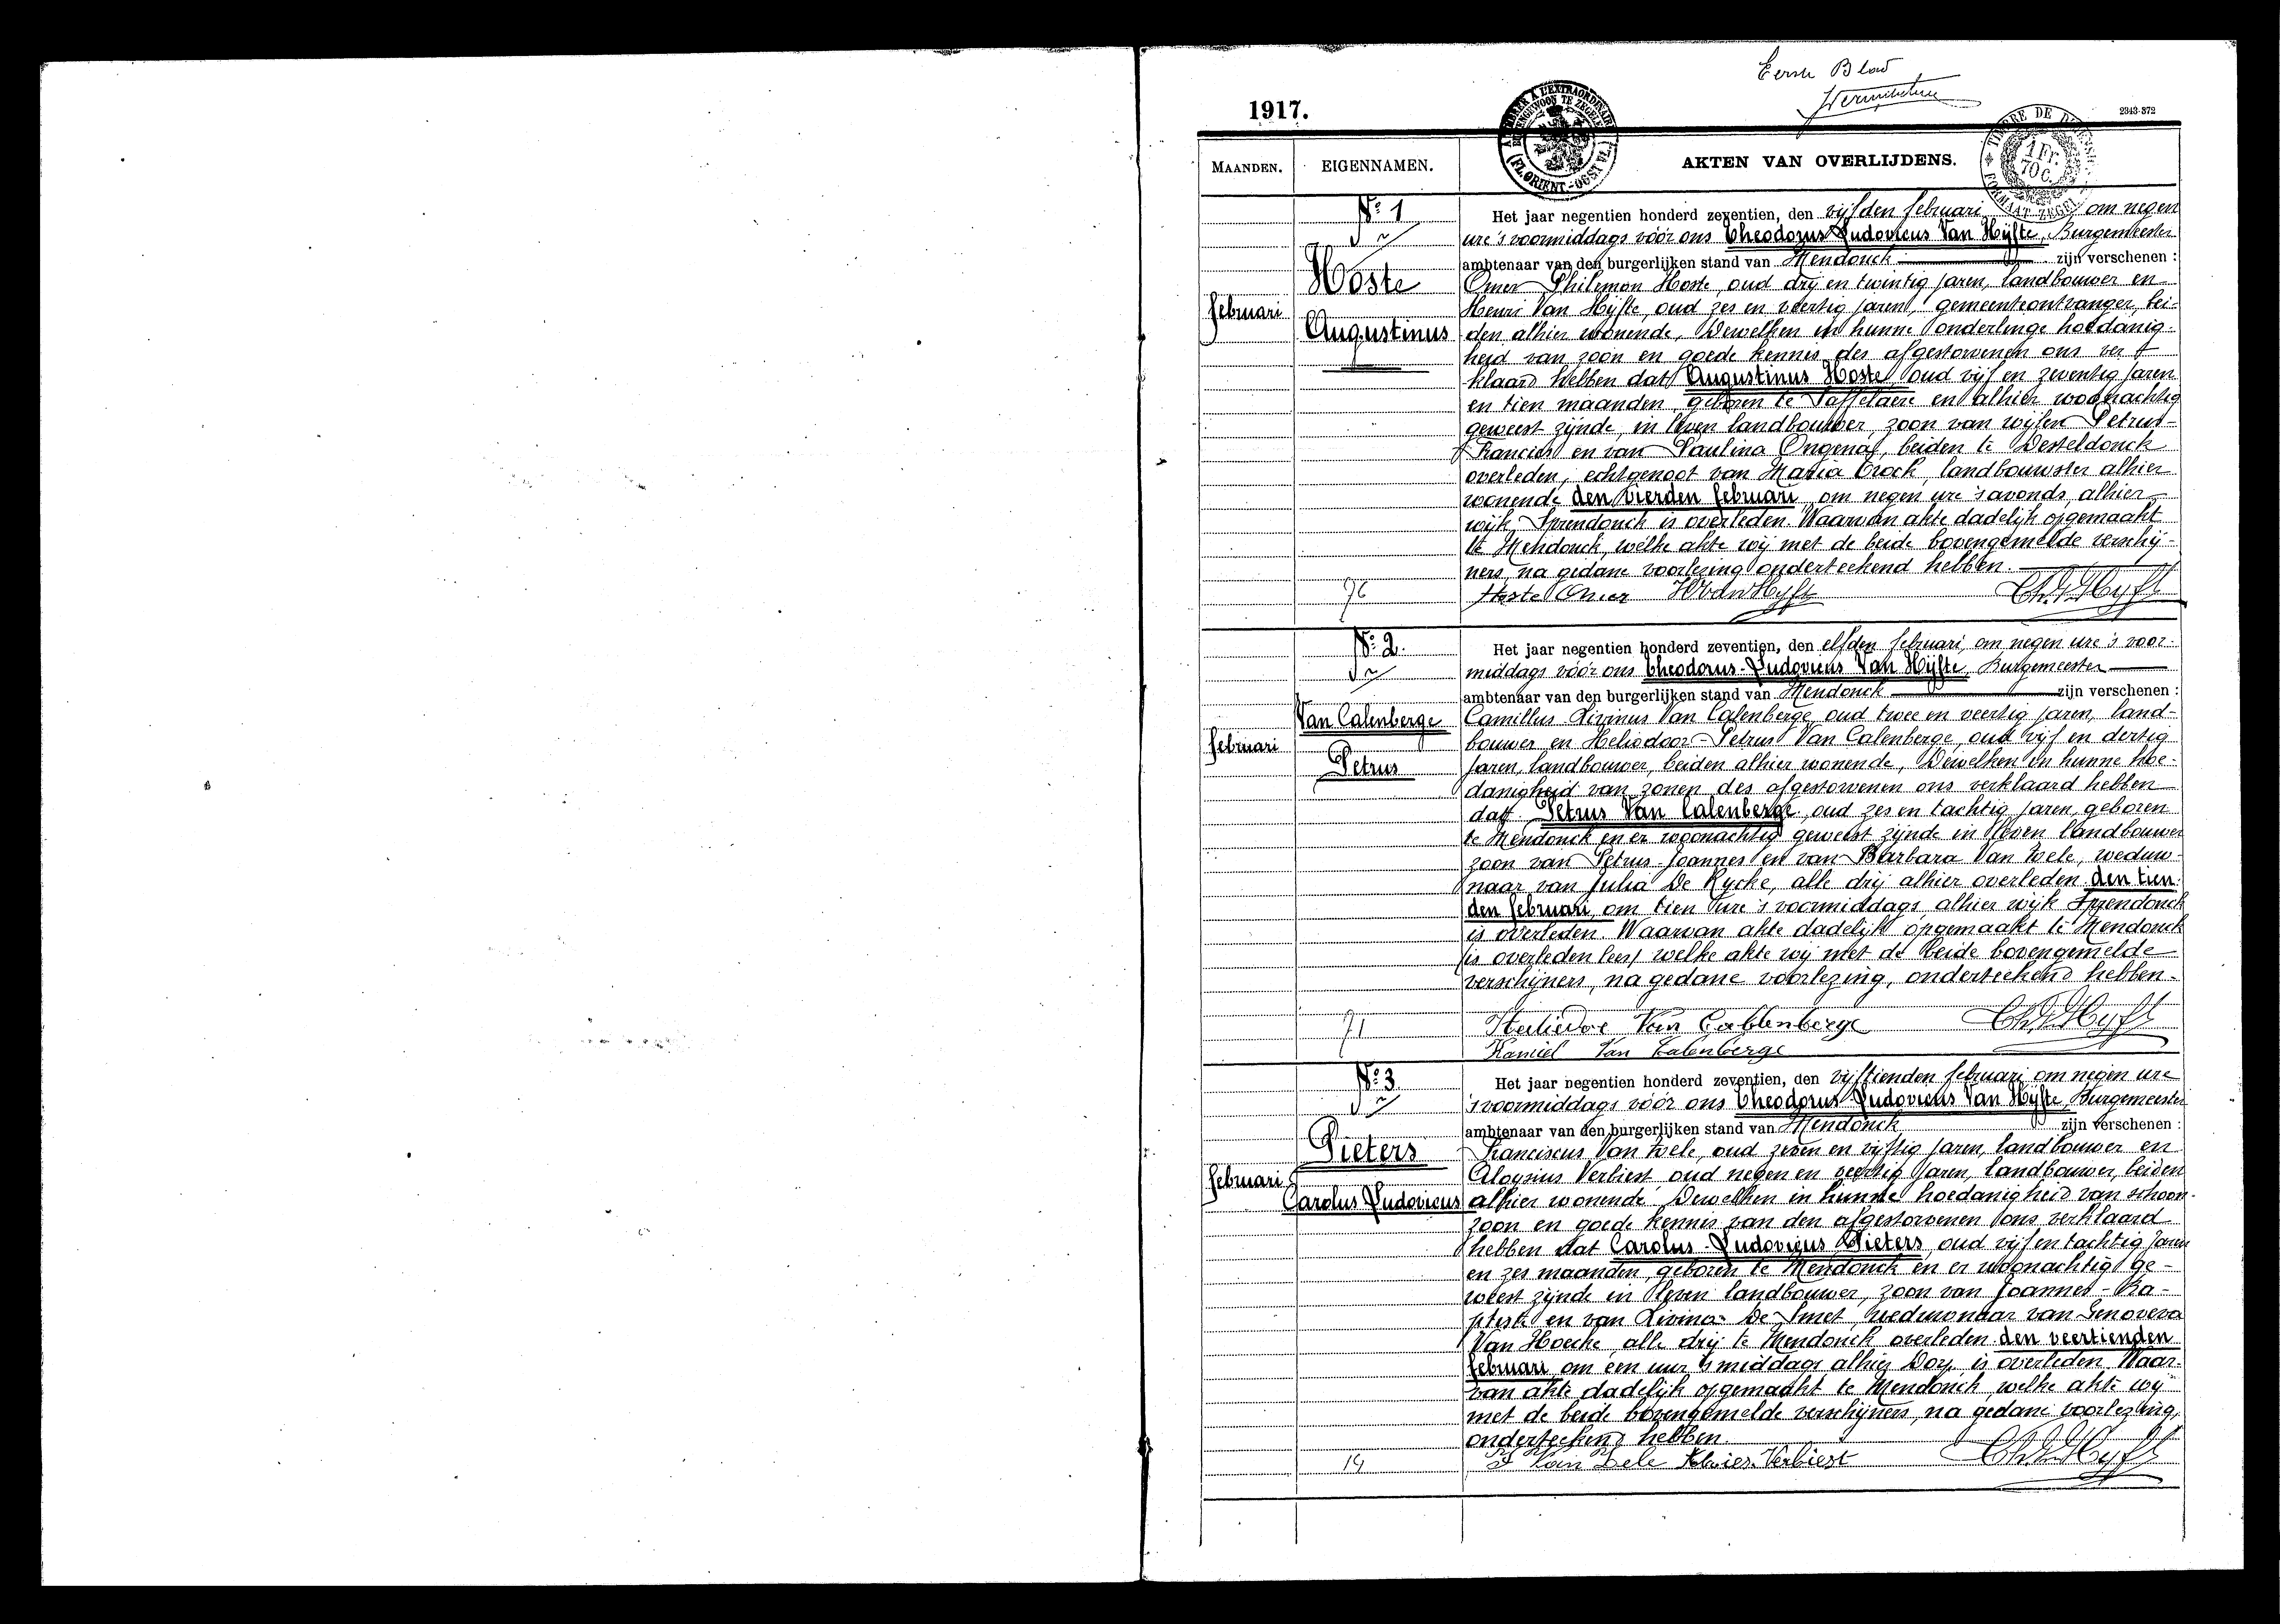 Eerste Blad
1917.
2343-372
TIMBRE DE DIMENSION
FORMAAT ZEGEL
1 Fr.
70 c.
(FL. ORIENT. - OOST VL.)
MAANDEN.
EIGENNAMEN.
AKTEN VAN OVERLIJDENS.
N° 1
Hoste
februari
Augustinus
Het jaar negentien honderd zeventien, den vijfden februari om negen
ure 's voormiddags vóór ons Theodorus Ludovicus Van Hijfte, Burgemeester
ambtenaar van den burgerlijken stand van Mendonck zijn verschenen :
Omer Philemon Hoste, oud drij en twintig jaren, landbouwer en
Henri Van Hijfte, oud zes en veertig jaren, gemeenteontvanger, bei-
den alhier wonende, Dewelken in hunne onderlinge hoedanig-
heid van zoon en goede kennis des afgestorvenen ons ver
klaard hebben dat Augustinus Hoste, oud vijf en zeventig jaren
en tien maanden, geboren te Saffelaere en alhier woonachtig
geweest zijnde, in leven landbouwer, zoon van wijlen Petrus-
Francies en van Paulina Ongena, beiden te Desteldonck
overleden, echtgenoot van Maria Crock, landbouwster alhier
wonende den vierden februari, om negen ure 's avonds, alhier
wijk Sprendonck is overleden. Waarvan akte dadelijk opgemaakt
te Mendonck, welke akte wij met de beide bovengemelde verschij-
ners, na gedane voorlezing onderteekend hebben.
76
Hoste Omer H Van Hyfte Th. L. V. Hyfte
N° 2.
Van Calenberge
februari
Petrus
Het jaar negentien honderd zeventien, den elfden februari, om negen ure 's voor-
middags vóór ons Theodorus-Ludovicus Van Hijfte, Burgemeester
ambtenaar van den burgerlijken stand van Mendonck zijn verschenen :
Camillus Livinus Van Calenberge, oud twee en veertig jaren, land-
bouwer en Heliodoor-Petrus Van Calenberge, oud vijf en dertig
jaren, landbouwer, beiden alhier wonende, Dewelken in hunne hoe-
danigheid van zonen des afgestorvenen ons verklaard hebben
dat Petrus Van Calenberge, oud zes en tachtig jaren, geboren
te Mendonck en er woonachtig geweest zijnde in leven landbouwer
zoon van Petrus-Joannes en van Barbara Van Zele, weduw-
naar van Julia De Rycke, alle drij alhier overleden den tien-
den februari, om tien ure 's voormiddags, alhier wijk Sprendonck
is overleden. Waarvan akte dadelijk opgemaakt te Mendonck
(is overleden lees) welke akte wij met de beide bovengemelde
verschijners, na gedane voorlezing, onderteekend hebben.
71
Heliedoe Van Callenberge Th. L. V. Hyfte
Kamiel Van Calenberge
N° 3
Pieters
februari
Carolus Ludovicus
Het jaar negentien honderd zeventien, den vijftienden februari om negen ure
's voormiddags vóór ons Theodorus Ludovicus Van Hijfte, Burgemeester
ambtenaar van den burgerlijken stand van Mendonck zijn verschenen :
Franciscus Van Zele, oud zeven en vijftig jaren, landbouwer en
Aloysius Verbiest oud negen en veertig jaren, landbouwer, beiden
alhier wonende, Dewelken in hunne hoedanigheid van schoon-
zoon en goede kennis van den afgestorvenen ons verklaard
hebben dat Carolus-Ludovicus Pieters, oud vijf en tachtig jaren
en zes maanden, geboren te Mendonck en er woonachtig ge-
weest zijnde in leven landbouwer, zoon van Joannes-Ba-
ptist en van Livina De Smet, weduwnaar van Genoveva
Van Hoecke, alle drij te Mendonck overleden den veertienden
februari, om één uur 's middags alhier Dorp is overleden. Waar-
van akte dadelijk opgemaakt te Mendonck welke akte wij
met de beide bovengemelde verschijners, na gedane voorlezing,
onderteekend hebben
14
F Van Zele Alowies Verbiest Th. L. V. Hyfte